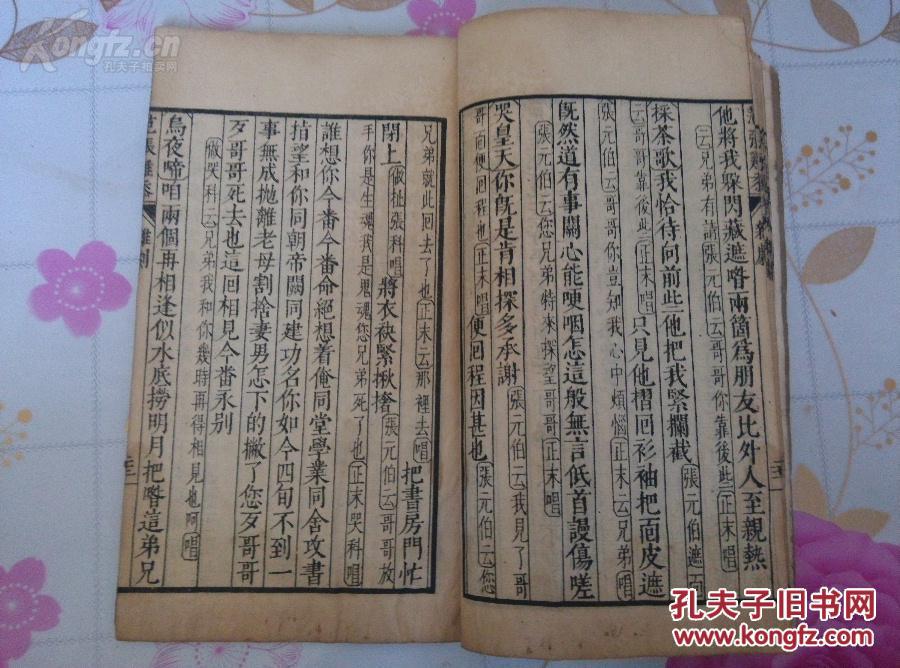 他將我躱閃藏遮喒兩箇爲朋友比外人至親熱
云兄弟有請張元伯云哥哥你靠後些正末唱
採茶歌我恰待向前些他把我緊攔截
張元伯遮面
云哥哥靠後些正末唱只見他摺回衫袖把面皮遮
張元伯云哥哥你豈知我心中煩惱正末云兄弟唱
旣然道有事關心能哽咽怎這般無言低首謾傷嗟
張元伯云兄弟特來探望哥哥正末唱
哭皇天你旣是肯相探多承謝
張元伯云我見了哥
哥面便回程也正末唱便回程因甚也張元伯云您
兄弟就此回去了也正末云那裡去唱把書房門忙
閉上做扯張科唱將衣袂緊揪撦張元伯云哥哥放
手你是生魂我是鬼魂您兄弟死了也正末哭科唱
誰想你今番今番命絕想着俺同堂學業同舍攻書
指望和你同朝帝闕同建功名你如今四旬不到一
事無成拋離老母割捨妻男怎下的撇了您歹哥哥
歹哥哥死去也這回相見今番永别
做哭科云兄弟我和你幾時再得相見也阿唱
烏夜啼咱兩個再相逢似水底撈明月把喒這弟兄
范張雞黍
雜劇
二十二
Kongfz.cn
孔夫子拍卖网
孔夫子旧书网
www.kongfz.com